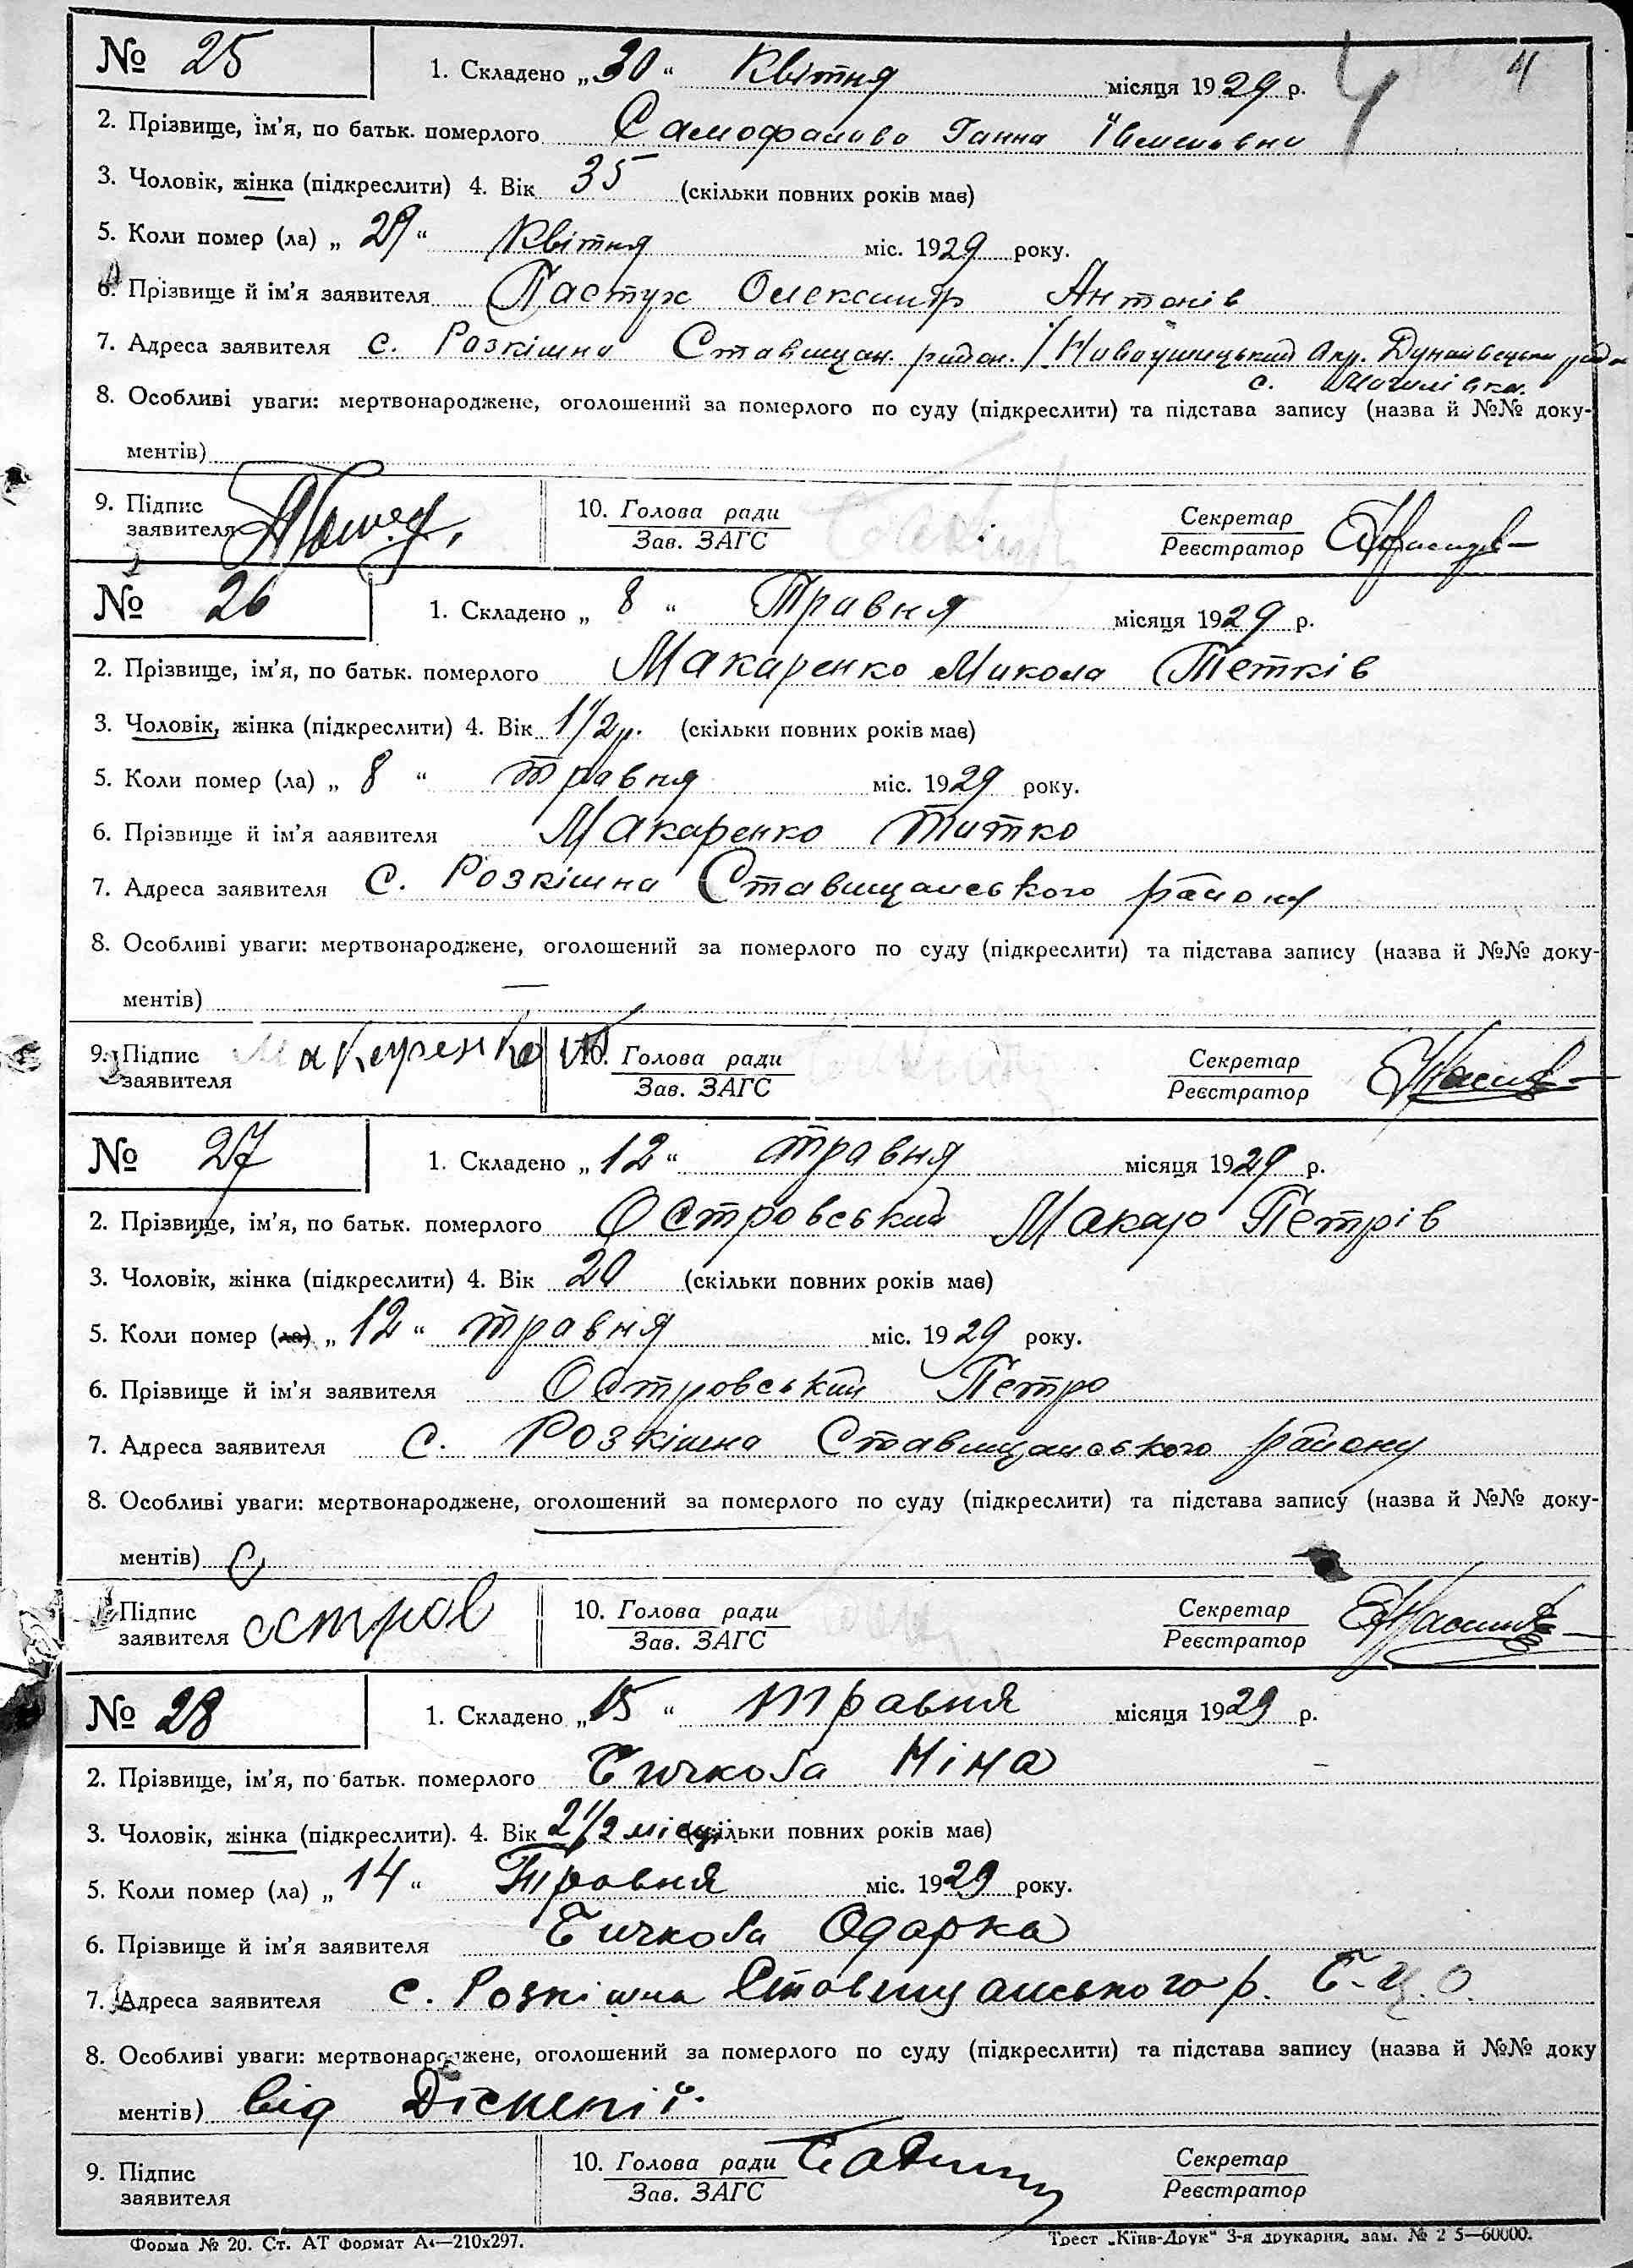 № 25 1. Складено „30“ Квітня місяця 1929 р. 4 4
2. Прізвище, ім’я, по батьк. померлого Самофалова Ганна
3. Чоловік, жінка (підкреслити) 4. Вік 35 (скільки повних років має)
5. Коли помер (ла) „29“ Квітня міс. 1929 року.
6. Прізвище й ім’я заявителя Пастух Олександр Антонів
7. Адреса заявителя с. Розкішна Ставищан. район. / Новоушицький Окр. Дунаївецьки район
с. Могилівка.
8. Особливі уваги: мертвонароджене, оголошений за померлого по суду (підкреслити) та підстава запису (назва й №№ доку-
ментів)
9. Підпис заявителя 10. Голова ради Зав. ЗАГС Секретар Реєстратор
№ 26 1. Складено „ 8 “ Травня місяця 1929 р.
2. Прізвище, ім’я, по батьк. померлого Макаренко Микола Тетків
3. Чоловік, жінка (підкреслити) 4. Вік 1 1/2 р. (скільки повних років має)
5. Коли помер (ла) „ 8 “ травня міс. 1929 року.
6. Прізвище й ім’я ааявителя Макаренко Титко
7. Адреса заявителя с. Розкішна Ставищанського району
8. Особливі уваги: мертвонароджене, оголошений за померлого по суду (підкреслити) та підстава запису (назва й №№ доку-
ментів) —
9. Підпис заявителя Макаренко Т 10. Голова ради Зав. ЗАГС Секретар Реєстратор
№ 27 1. Складено „12“ травня місяця 1929 р.
2. Прізвище, ім’я, по батьк. померлого Островський Макар Петрів
3. Чоловік, жінка (підкреслити) 4. Вік 20 (скільки повних років має)
5. Коли помер (ла) „12“ травня міс. 1929 року.
6. Прізвище й ім’я заявителя Островський Петро
7. Адреса заявителя с. Розкішна Ставищанського району
8. Особливі уваги: мертвонароджене, оголошений за померлого по суду (підкреслити) та підстава запису (назва й №№ доку-
ментів)
Підпис заявителя остров 10. Голова ради Зав. ЗАГС Секретар Реєстратор
№ 28 1. Складено „15“ травня місяця 1929 р.
2. Прізвище, ім’я, по батьк. померлого Бичкова Ніна
3. Чоловік, жінка (підкреслити). 4. Вік 2 1/2 місяці (скільки повних років має)
5. Коли помер (ла) „14“ Травня міс. 1929 року.
6. Прізвище й ім’я заявителя Бичкова Одарка
7. Адреса заявителя с. Розкішна Ставищанського р. Б-Ц. О.
8. Особливі уваги: мертвонароджене, оголошений за померлого по суду (підкреслити) та підстава запису (назва й №№ доку
ментів) від Діспепії.
9. Підпис заявителя 10. Голова ради Зав. ЗАГС Секретар Реєстратор
Форма № 20. Ст. АТ Формат А4—210х297. Трест „Київ-Друк“ 3-я друкарня, зам. № 2 5—60000.